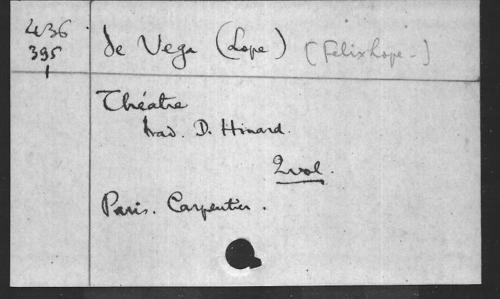 436
395
de Vega (Lope) [Felix Lope-]
Théatre
trad. D. Hinard.
2 vol.
Paris. Carpentier.